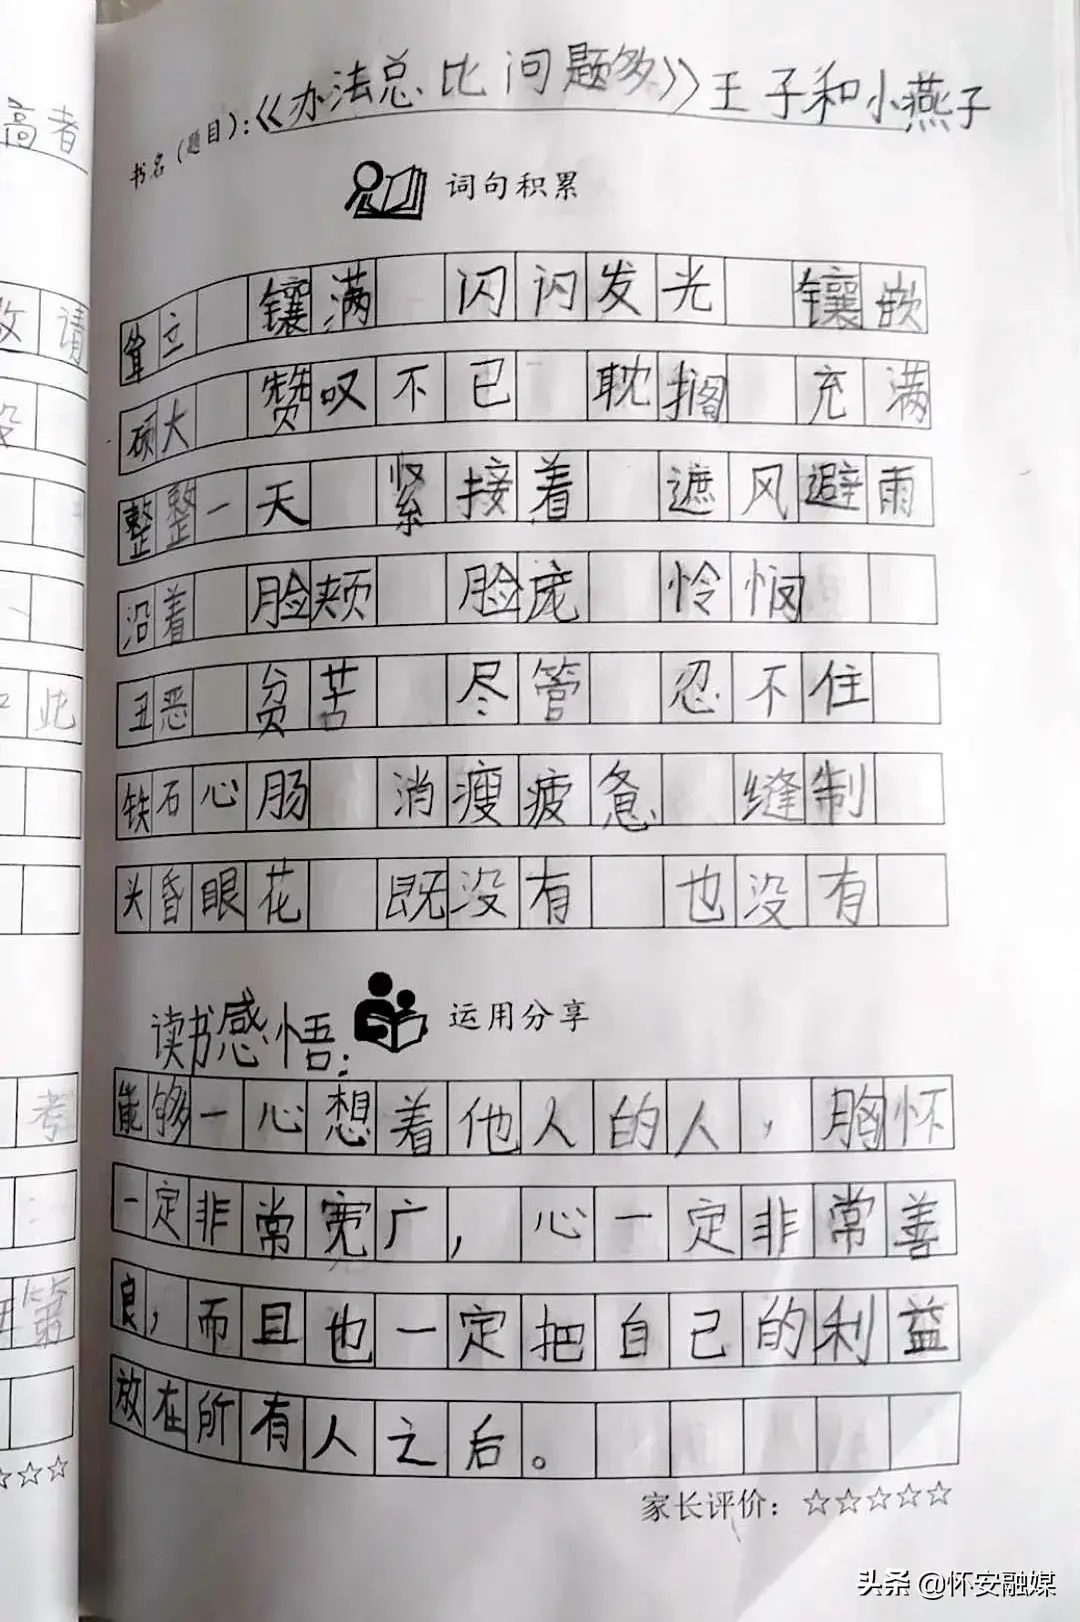 书名（题目）：《办法总比问题多》王子和小燕子
词句积累
耸立 镶满 闪闪发光 镶嵌
硕大 赞叹不已 耽搁 充满
整整一天 紧接着 遮风避雨
沿着 脸颊 脸庞 怜悯
丑恶 贫苦 尽管 忍不住
铁石心肠 消瘦疲惫 缝制
头昏眼花 既没有 也没有
读书感悟： 运用分享
能够一心想着他人的人，胸怀
一定非常宽广，心一定非常善
良，而且也一定把自己的利益
放在所有人之后。
家长评价：☆☆☆☆☆
高者
请
没
此
考
第
☆☆☆
头条 @怀安融媒